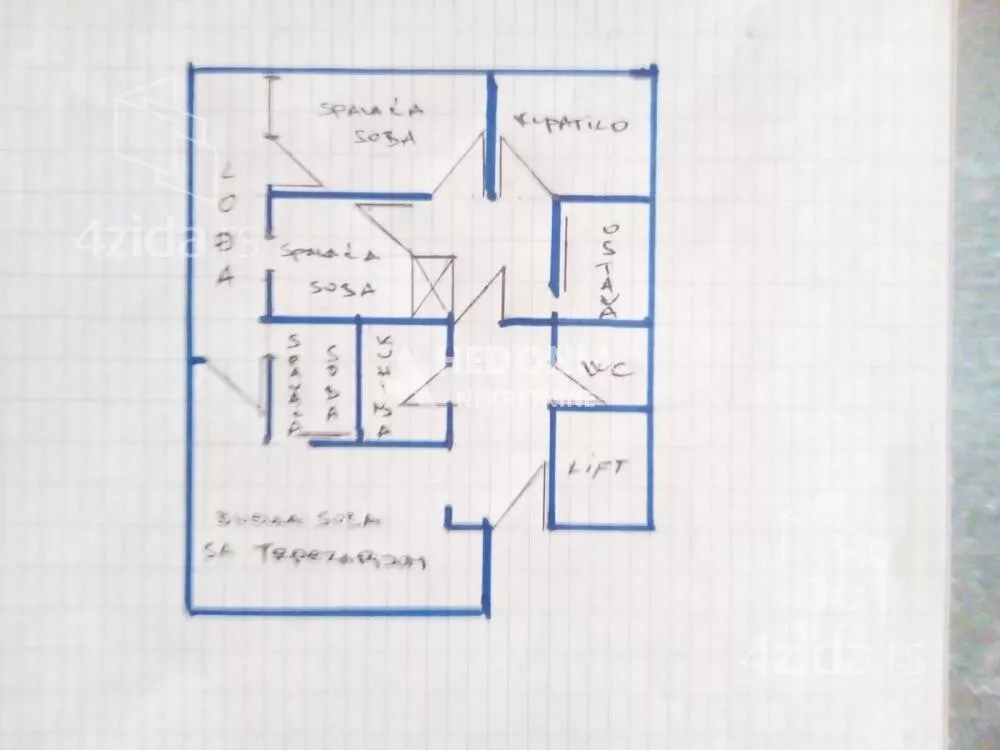 SPAVAĆA
SOBA
KUPATILO
LOĐA
SPAVAĆA
SOBA
OSTAVA
SPAVAĆA
SOBA
KUHINJA
WC
LIFT
DNEVNA SOBA
SA TRPEZARIJOM
4zida.rs
HEDONIA
NEKRETNINE
4zida.rs